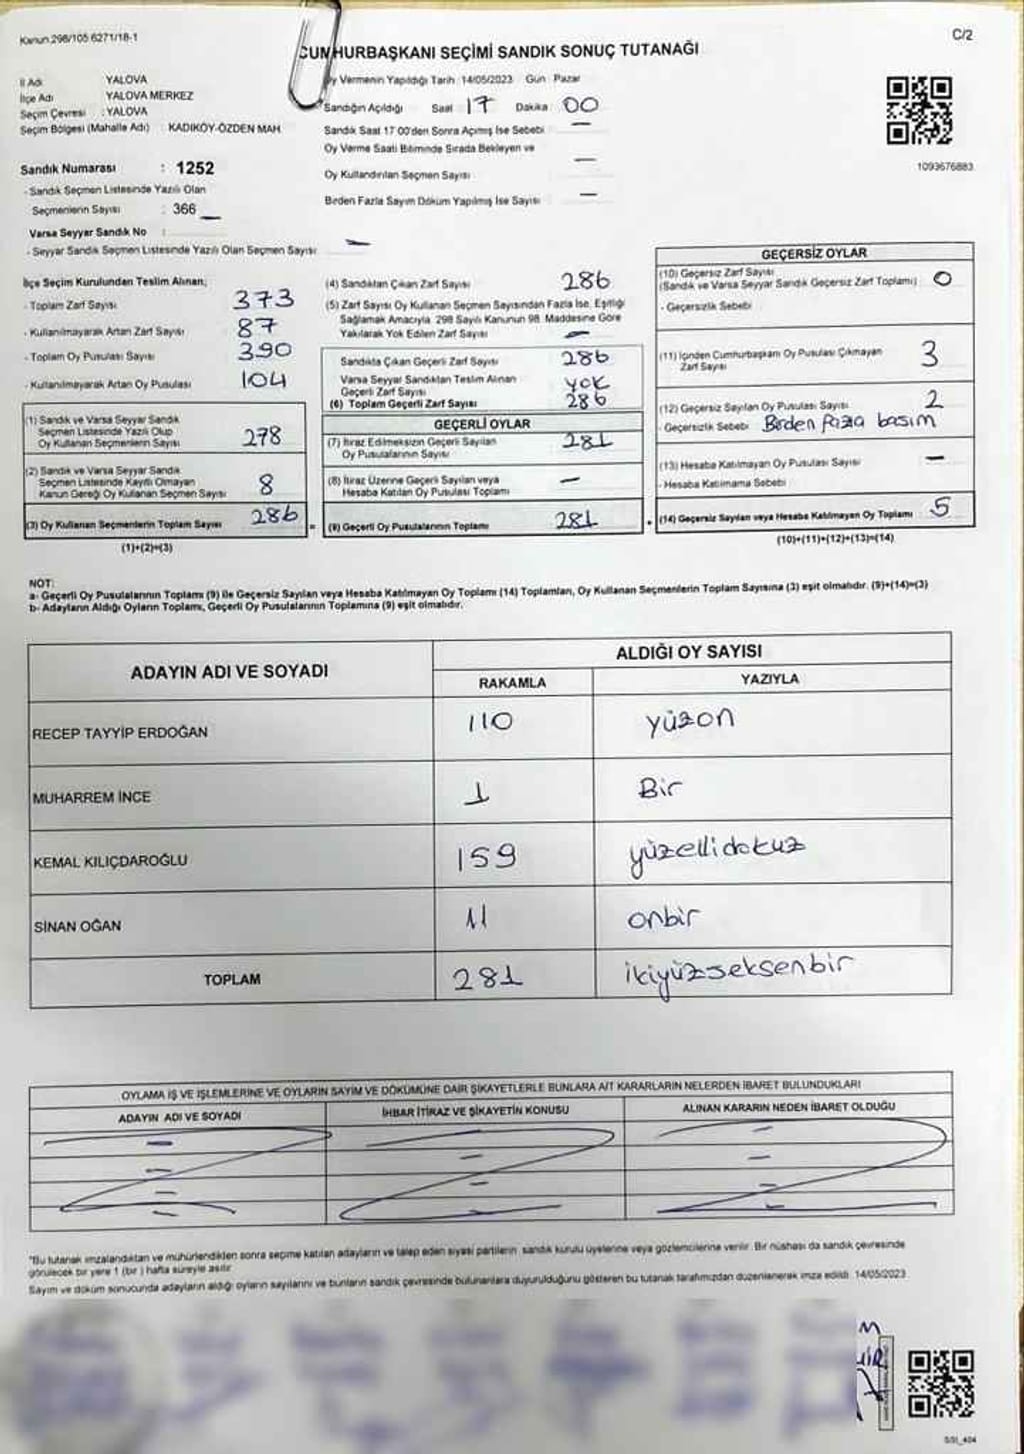 Kanun 298/105 6271/18-1
C/2
CUMHURBAŞKANI SEÇİMİ SANDIK SONUÇ TUTANAĞI
İl Adı YALOVA
İlçe Adı YALOVA MERKEZ
Seçim Çevresi : YALOVA
Seçim Bölgesi (Mahalle Adı) : KADIKÖY-ÖZDEN MAH
Oy Vermenin Yapıldığı Tarih : 14/05/2023 Gün : Pazar
Sandığın Açıldığı Saat 17 Dakika 00
Sandık Saat 17 00'den Sonra Açımış İse Sebebi —
Oy Verme Saati Bitiminde Sırada Bekleyen ve
Oy Kullandırılan Seçmen Sayısı —
Birden Fazla Sayım Döküm Yapılmış İse Sayısı —
1093676883
Sandık Numarası : 1252
- Sandık Seçmen Listesinde Yazılı Olan
Seçmenlerin Sayısı : 366
Varsa Seyyar Sandık No :
- Seyyar Sandık Seçmen Listesinde Yazılı Olan Seçmen Sayısı —
İlçe Seçim Kurulundan Teslim Alınan;
- Toplam Zarf Sayısı 373
- Kullanılmayarak Artan Zarf Sayısı 87
- Toplam Oy Pusulası Sayısı 390
- Kullanılmayarak Artan Oy Pusulası 104
(1) Sandık ve Varsa Seyyar Sandık
Seçmen Listesinde Yazılı Olup
Oy Kullanan Seçmenlerin Sayısı 278
(2) Sandık ve Varsa Seyyar Sandık
Seçmen Listesinde Kayıtlı Olmayan
Kanun Gereği Oy Kullanan Seçmen Sayısı 8
(3) Oy Kullanan Seçmenlerin Toplam Sayısı 286
(1)+(2)=(3)
(4) Sandıktan Çıkan Zarf Sayısı 286
(5) Zarf Sayısı Oy Kullanan Seçmen Sayısından Fazla İse, Eşitliği
Sağlamak Amacıyla, 298 Sayılı Kanunun 98. Maddesine Göre
Yakılarak Yok Edilen Zarf Sayısı —
Sandıkta Çıkan Geçerli Zarf Sayısı 286
Varsa Seyyar Sandıktan Teslim Alınan
Geçerli Zarf Sayısı yok
(6) Toplam Geçerli Zarf Sayısı 286
GEÇERLİ OYLAR
(7) İtiraz Edilmeksizin Geçerli Sayılan
Oy Pusulalarının Sayısı 281
(8) İtiraz Üzerine Geçerli Sayılan veya
Hesaba Katılan Oy Pusulası Toplamı —
= (9) Geçerli Oy Pusulalarının Toplamı 281
GEÇERSİZ OYLAR
(10) Geçersiz Zarf Sayısı
(Sandık ve Varsa Seyyar Sandık Geçersiz Zarf Toplamı) 0
- Geçersizlik Sebebi :
(11) İçinden Cumhurbaşkanı Oy Pusulası Çıkmayan
Zarf Sayısı 3
(12) Geçersiz Sayılan Oy Pusulası Sayısı 2
- Geçersizlik Sebebi Birden fazla basım
(13) Hesaba Katılmayan Oy Pusulası Sayısı —
- Hesaba Katılmama Sebebi
+ (14) Geçersiz Sayılan veya Hesaba Katılmayan Oy Toplamı 5
(10)+(11)+(12)+(13)=(14)
NOT:
a- Geçerli Oy Pusulalarının Toplamı (9) ile Geçersiz Sayılan veya Hesaba Katılmayan Oy Toplamı (14) Toplamları, Oy Kullanan Seçmenlerin Toplam Sayısına (3) eşit olmalıdır. (9)+(14)=(3)
b- Adayların Aldığı Oyların Toplamı, Geçerli Oy Pusulalarının Toplamına (9) eşit olmalıdır.
ADAYIN ADI VE SOYADI
ALDIĞI OY SAYISI
RAKAMLA YAZIYLA
RECEP TAYYİP ERDOĞAN 110 yüzon
MUHARREM İNCE 1 Bir
KEMAL KILIÇDAROĞLU 159 yüzellidokuz
SİNAN OĞAN 11 onbir
TOPLAM 281 ikiyüzseksenbir
OYLAMA İŞ VE İŞLEMLERİNE VE OYLARIN SAYIM VE DÖKÜMÜNE DAİR ŞİKAYETLERLE BUNLARA AİT KARARLARIN NELERDEN İBARET BULUNDUKLARI
ADAYIN ADI VE SOYADI İHBAR İTİRAZ VE ŞİKAYETİN KONUSU ALINAN KARARIN NEDEN İBARET OLDUĞU
*Bu tutanak imzalandıktan ve mühürlendikten sonra seçime katılan adayların ve talep eden siyasi partilerin sandık kurulu üyelerine veya gözlemcilerine verilir. Bir nüshası da sandık çevresinde
görülecek bir yere 1 (bir ) hafta süreyle asılır.
Sayım ve döküm sonucunda adayların aldığı oyların sayılarını ve bunların sandık çevresinde bulunanlara duyurulduğunu gösteren bu tutanak tarafımızdan düzenlenerek imza edildi. 14/05/2023